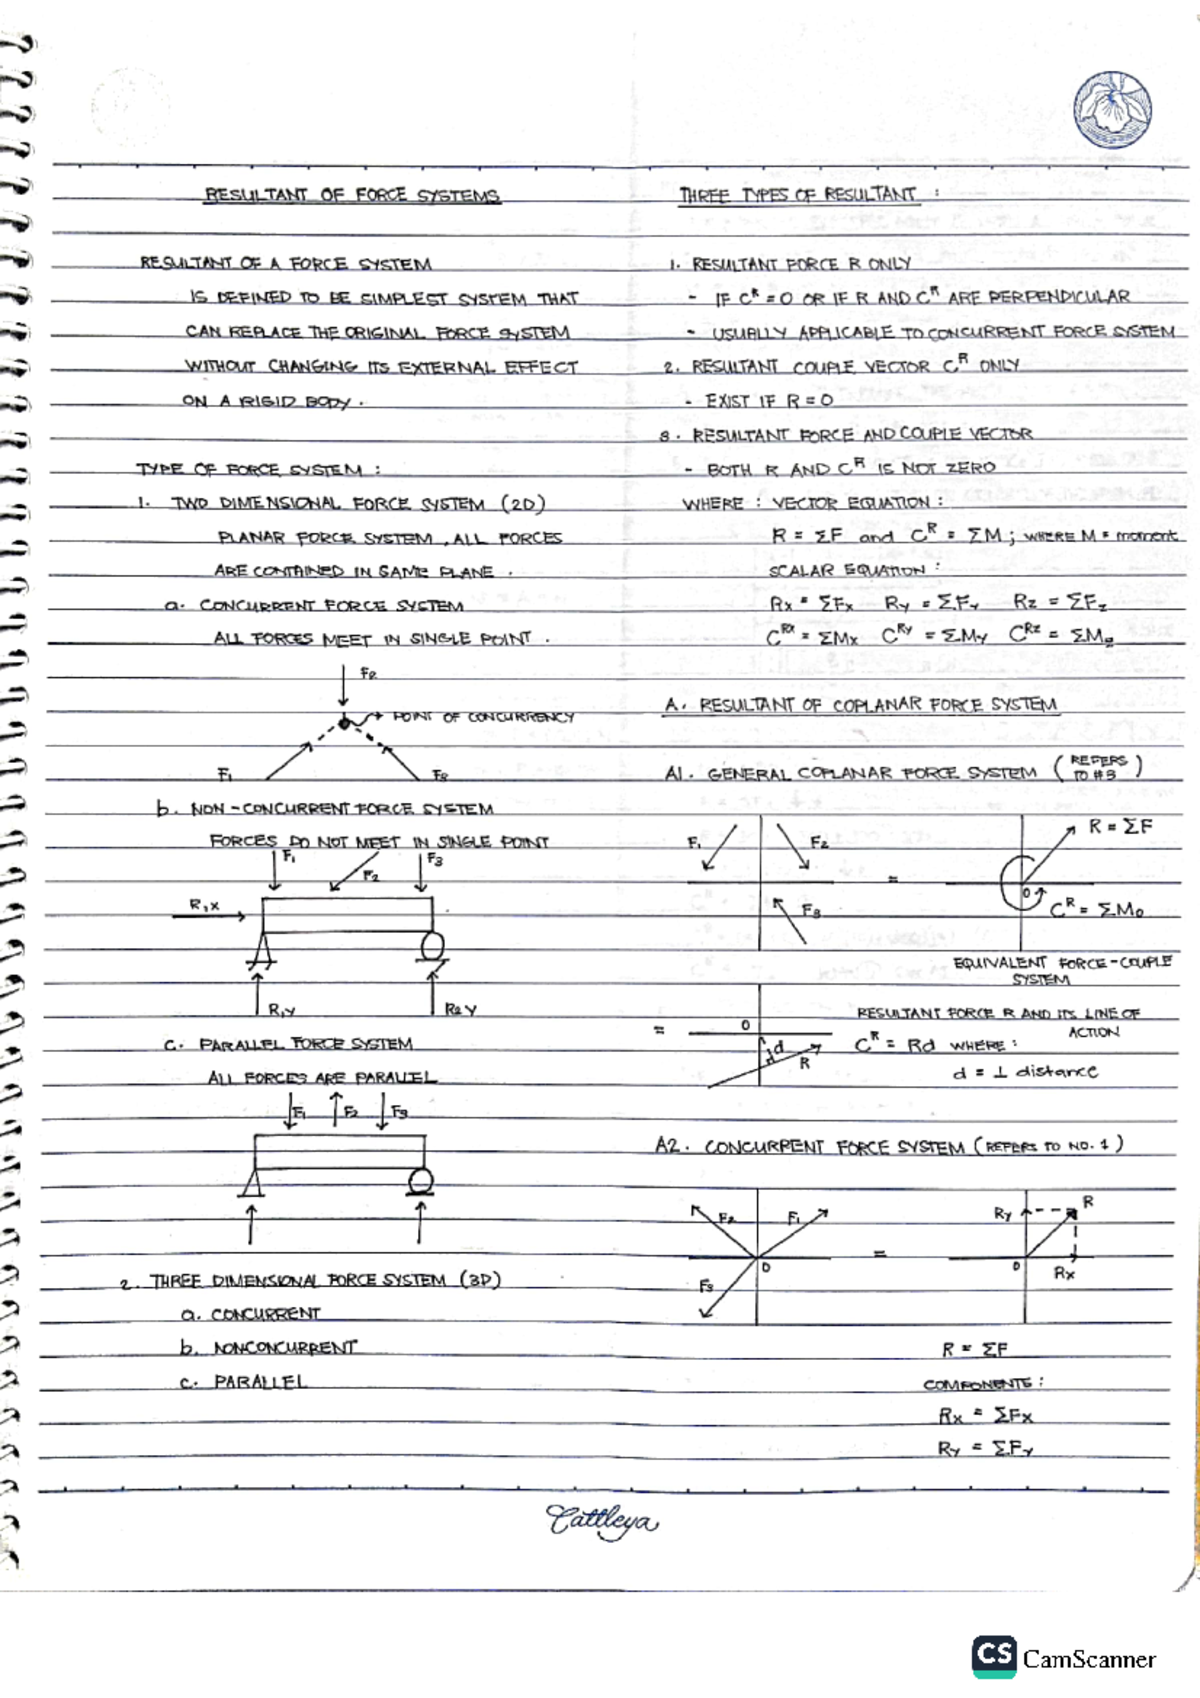 RESULTANT OF FORCE SYSTEMS
RESULTANT OF A FORCE SYSTEM
IS DEFINED TO BE SIMPLEST SYSTEM THAT
CAN REPLACE THE ORIGINAL FORCE SYSTEM
WITHOUT CHANGING ITS EXTERNAL EFFECT
ON A RIGID BODY.
TYPE OF FORCE SYSTEM :
1. TWO DIMENSIONAL FORCE SYSTEM (2D)
PLANAR FORCE SYSTEM, ALL FORCES
ARE CONTAINED IN SAME PLANE.
a. CONCURRENT FORCE SYSTEM
ALL FORCES MEET IN SINGLE POINT.
F2
POINT OF CONCURRENCY
F1
F3
b. NON-CONCURRENT FORCE SYSTEM
FORCES DO NOT MEET IN SINGLE POINT
F1 F2 F3
R1X
R1Y R2Y
C. PARALLEL FORCE SYSTEM
ALL FORCES ARE PARALLEL
F1 F2 F3
2. THREE DIMENSIONAL FORCE SYSTEM (3D)
a. CONCURRENT
b. NONCONCURRENT
c. PARALLEL
THREE TYPES OF RESULTANT :
1. RESULTANT FORCE R ONLY
- IF Cᴿ = 0 OR IF R AND Cᴿ ARE PERPENDICULAR
- USUALLY APPLICABLE TO CONCURRENT FORCE SYSTEM
2. RESULTANT COUPLE VECTOR Cᴿ ONLY
- EXIST IF R = 0
3. RESULTANT FORCE AND COUPLE VECTOR
- BOTH R AND Cᴿ IS NOT ZERO
WHERE : VECTOR EQUATION :
R = ΣF and Cᴿ = ΣM ; WHERE M = moment
SCALAR EQUATION :
Rx = ΣFx Ry = ΣFy Rz = ΣFz
Cᴿˣ = ΣMx Cᴿʸ = ΣMy Cᴿᶻ = ΣMz
A. RESULTANT OF COPLANAR FORCE SYSTEM
A1. GENERAL COPLANAR FORCE SYSTEM (REFERS TO #3)
F1 F2 F3 = R = ΣF
O
Cᴿ = ΣMo
EQUIVALENT FORCE-COUPLE
SYSTEM
= O d R
RESULTANT FORCE R AND ITS LINE OF
ACTION
Cᴿ = Rd WHERE :
d = ⊥ distance
A2. CONCURRENT FORCE SYSTEM (REFERS TO NO. 1)
F2 F1 Ry R
F3 O = O Rx
R = ΣF
COMPONENTS :
Rx = ΣFx
Ry = ΣFy
Cattleya
CS CamScanner